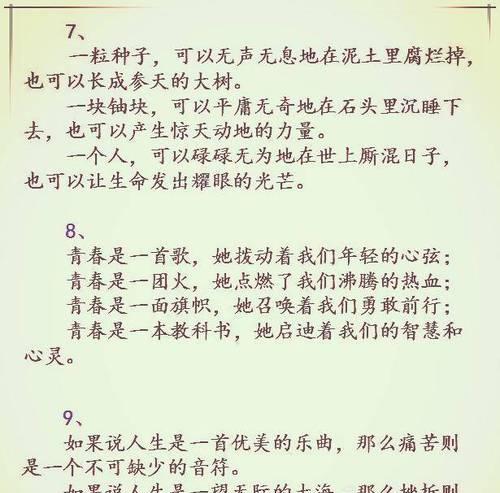 7、
一粒种子，可以无声无息地在泥土里腐烂掉，
也可以长成参天的大树。
一块铀块，可以平庸无奇地在石头里沉睡下
去，也可以产生惊天动地的力量。
一个人，可以碌碌无为地在世上厮混日子，
也可以让生命发出耀眼的光芒。
8、
青春是一首歌，她拨动着我们年轻的心弦；
青春是一团火，她点燃了我们沸腾的热血；
青春是一面旗帜，她召唤着我们勇敢前行；
青春是一本教科书，她启迪着我们的智慧和
心灵。
9、
如果说人生是一首优美的乐曲，那么痛苦则
是一个不可缺少的音符。
如果说人生是一望无际的大海，那么挫折则